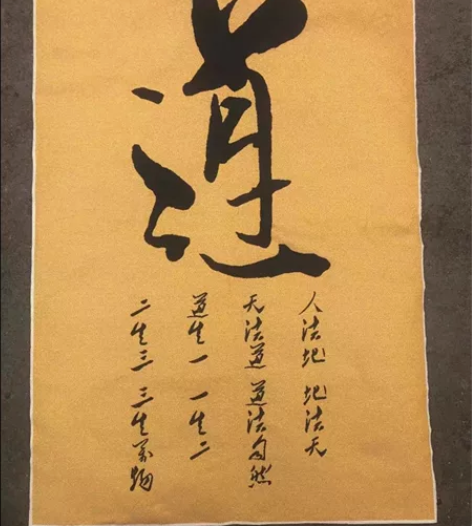 道
人法地 地法天
天法道 道法自然
道生一 一生二
二生三 三生万物